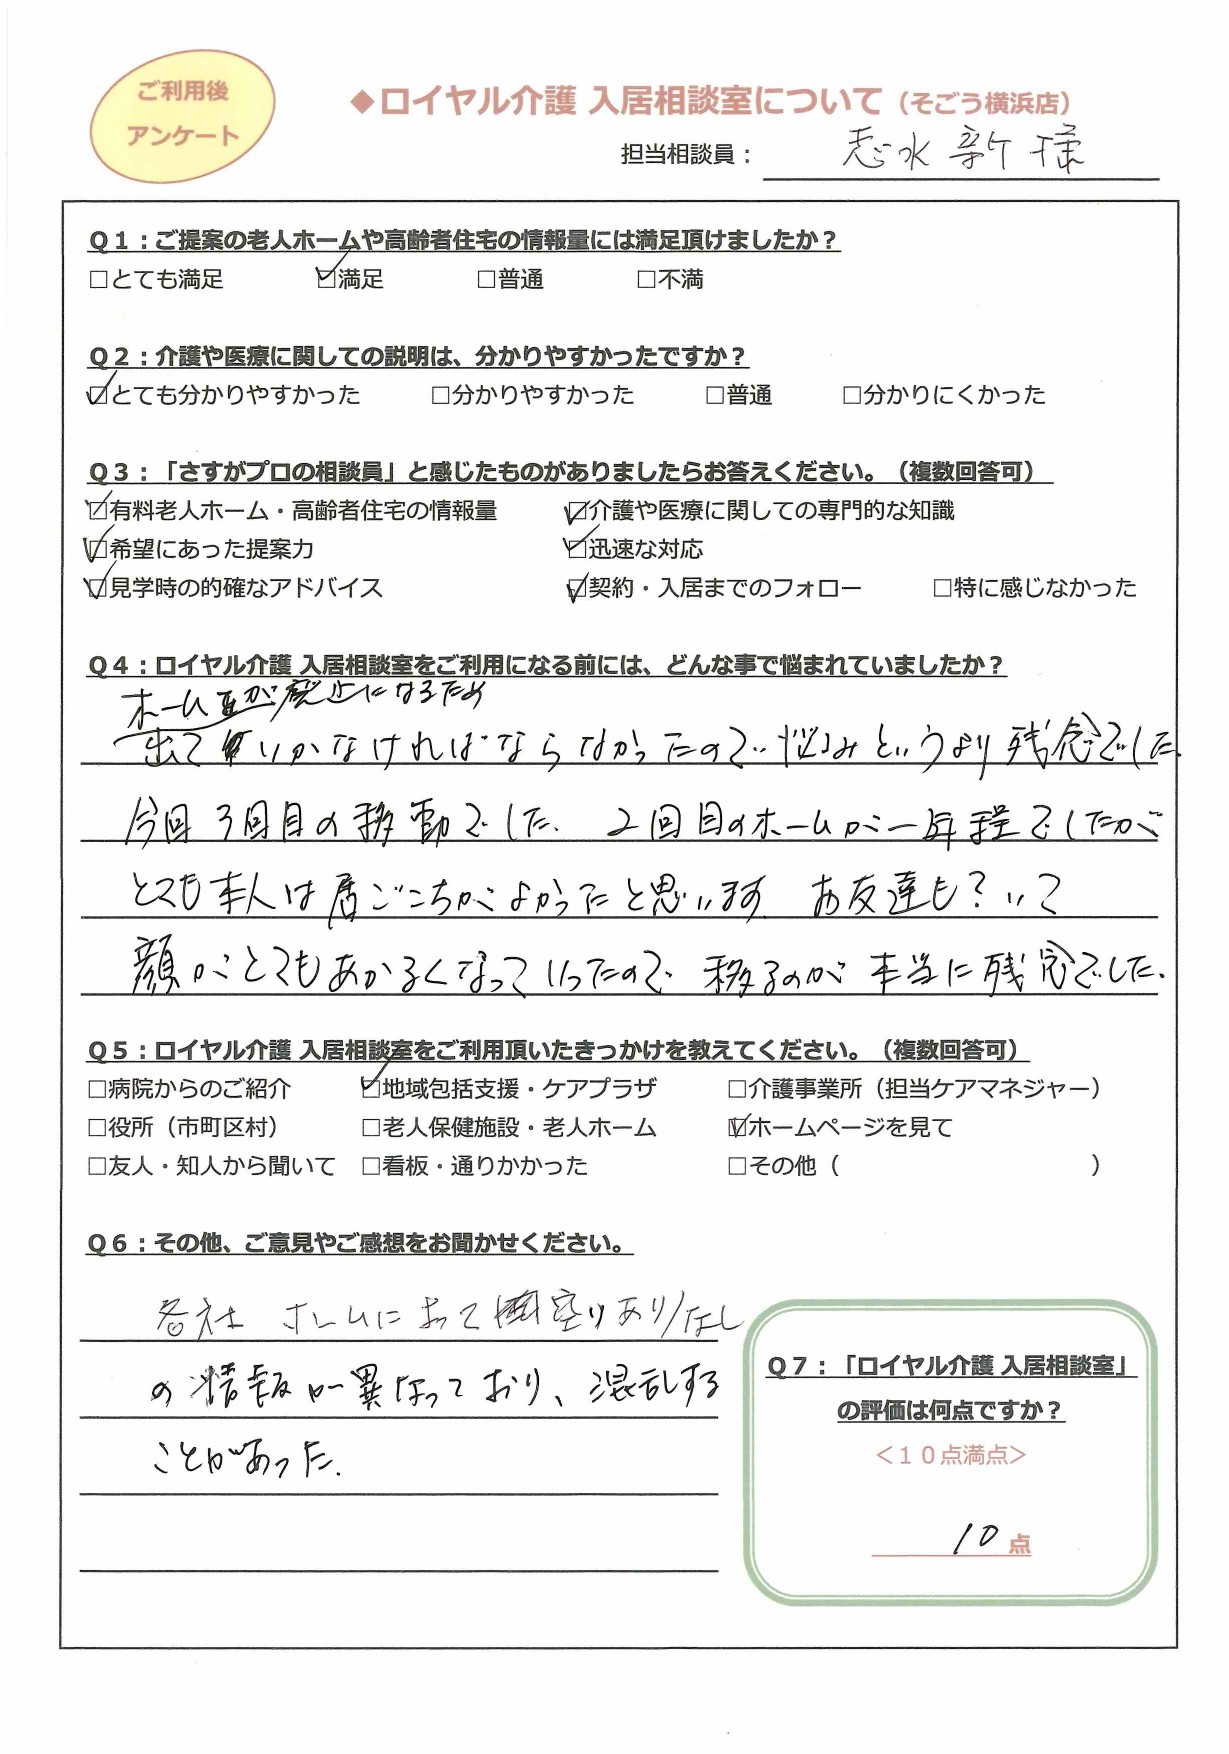 ご利用後
アンケート
◆ロイヤル介護 入居相談室について（そごう横浜店）
担当相談員： 志水 新 様
Ｑ１：ご提案の老人ホームや高齢者住宅の情報量には満足頂けましたか？
□とても満足 ☑満足 □普通 □不満
Ｑ２：介護や医療に関しての説明は、分かりやすかったですか？
☑とても分かりやすかった □分かりやすかった □普通 □分かりにくかった
Ｑ３：「さすがプロの相談員」と感じたものがありましたらお答えください。（複数回答可）
☑有料老人ホーム・高齢者住宅の情報量 ☑介護や医療に関しての専門的な知識
☑希望にあった提案力 ☑迅速な対応
☑見学時の的確なアドバイス ☑契約・入居までのフォロー □特に感じなかった
Ｑ４：ロイヤル介護 入居相談室をご利用になる前には、どんな事で悩まれていましたか？
ホームが廃止になるため
出ていかなければならなかったので悩みというより残念でした
今回3回目の移動でした. 2回目のホームが一年程でしたが
とても本人は居ごこちがよかったと思います お友達も?いて
顔がとてもあかるくなっていったので 移るのが本当に残念でした.
Ｑ５：ロイヤル介護 入居相談室をご利用頂いたきっかけを教えてください。（複数回答可）
□病院からのご紹介 ☑地域包括支援・ケアプラザ □介護事業所（担当ケアマネジャー）
□役所（市町区村） □老人保健施設・老人ホーム ☑ホームページを見て
□友人・知人から聞いて □看板・通りかかった □その他（ ）
Ｑ６：その他、ご意見やご感想をお聞かせください。
各社 ホームによって空りあり/なし
の情報が異なっており、混乱する
ことがあった.
Ｑ７：「ロイヤル介護 入居相談室」
の評価は何点ですか？
＜１０点満点＞
10 点